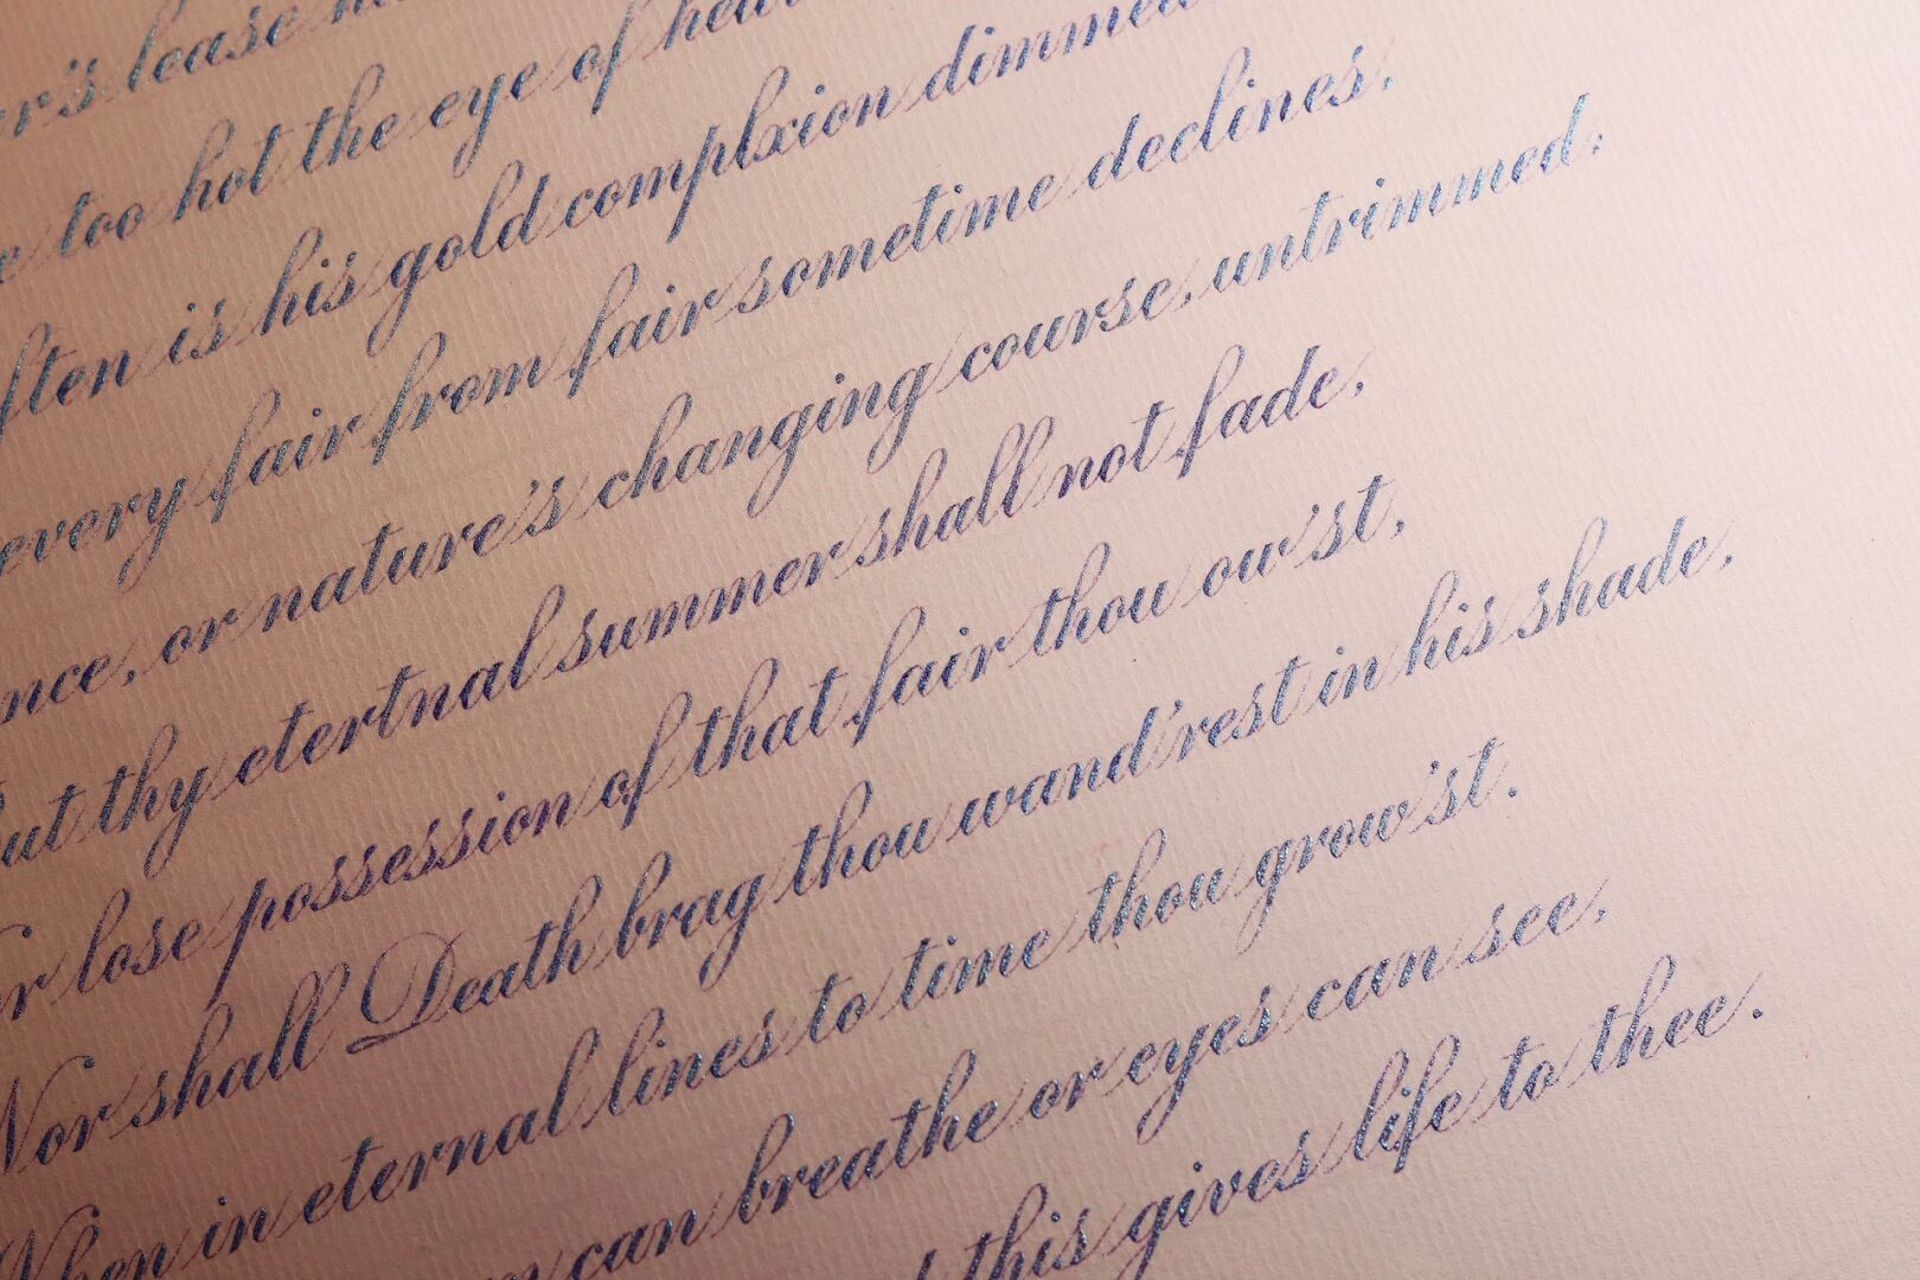 lease
too hot the eye of
is his gold complxion
every fair from fair sometime declines,
or nature's changing course, untrimmed:
thy etertnal summer shall not fade,
lose possession of that fair thou ow'st,
Nor shall Death brag thou wand'rest in his shade,
When in eternal lines to time thou grow'st.
can breathe or eyes can see,
this gives life to thee.